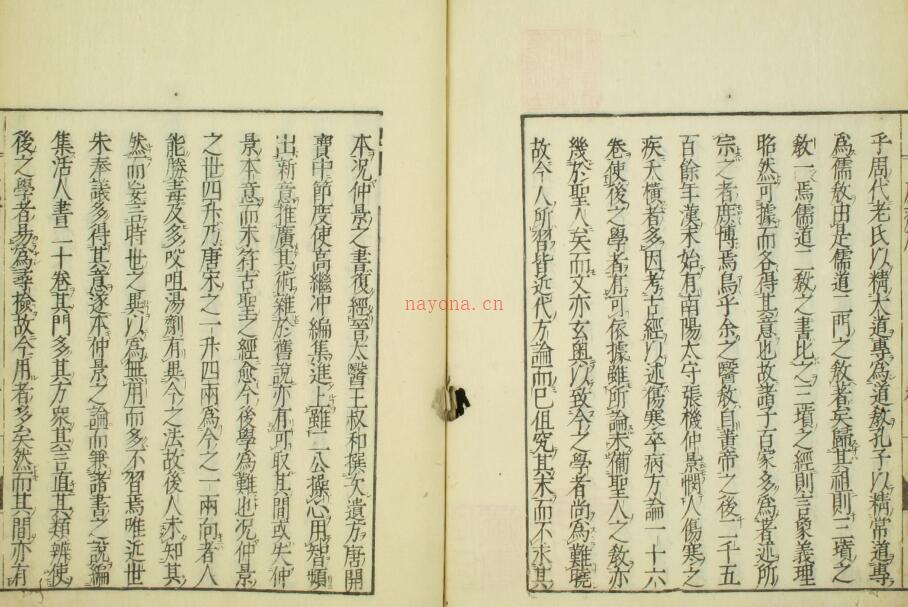 乎周代老氏以精大道專爲道教孔子以精常道專
爲儒教由是儒道二門之教著矣歸其祖則三墳之
教一焉儒道二教之書比之三墳之經則言象義理
昭然可據而各得其意也故諸子百家多爲著述所
宗之者庶博焉烏乎余之醫教自黃帝之後二千五
百餘年漢末始有南陽太守張機仲景憫人傷寒之
疾夭橫者多因考古經以述傷寒卒病方論一十六
卷使後之學者有可依據雖所論未備聖人之教亦
幾於聖人矣而文亦玄奧以致今之學者尚爲難曉
故今人所習皆近代方論而已但究其末而不求其
本況仲景之書復經晉太醫王叔和撰次遺方唐開
寶中節度使高繼冲編集進上雖二公操心用智頻
出新意推廣其術雜於舊說亦有可取其間或失仲
景本意而未符古聖之經愈今後學爲難也況仲景
之世四升乃唐宋之一升四兩爲今之一兩向者人
能勝毒及多㕮咀湯劑有異今之法故後人未知其
然而妄言時世之異以爲無用而多不習焉唯近世
朱奉議多得其意遂本仲景之論而兼諸書之說編
集活人書二十卷其門多其方衆其言直其類辨使
後之學者易爲尋檢故今用者多矣然而其間亦有
nayona.cn